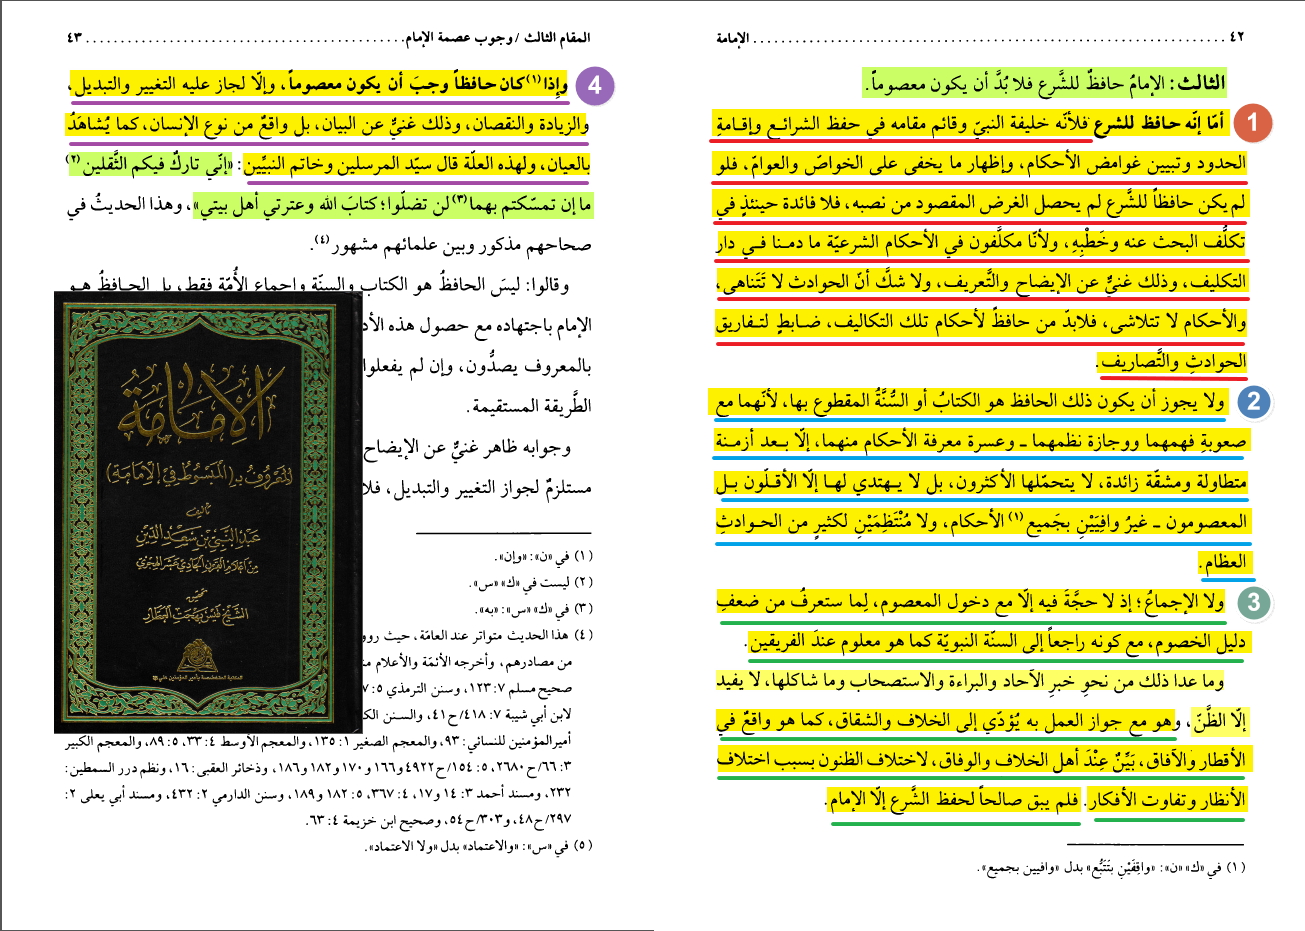 ٤٢ ........................................................................ الإمامة
الثالث: الإمامُ حافظٌ للشَّرع فلا بُدَّ أن يكون معصوماً.
1
أمّا إنّه حافظ للشرع فلأنّه خليفة النبيّ وقائم مقامه في حفظ الشرائع وإقامةِ
الحدود وتبيين غوامض الأحكام، وإظهار ما يخفى على الخواصّ والعوامّ، فلو
لم يكن حافظاً للشَّرع لم يحصل الغرض المقصود من نصبه، فلا فائدة حينئذٍ في
تكلُّف البحث عنه وخَطْبِهِ، ولأنّا مكلَّفون في الأحكام الشرعيّة ما دمنا في دار
التكليف، وذلك غنيٌّ عن الإيضاح والتَّعريف، ولا شكَّ أنّ الحوادث لا تَتَناهى،
والأحكام لا تتلاشى، فلابدّ من حافظٌ لأحكام تلك التكاليف، ضابطٍ لتفاريق
الحوادثِ والتَّصاريف.
2
ولا يجوز أن يكون ذلك الحافظ هو الكتابُ أو السُّنَّةُ المقطوع بها، لأنّهما مع
صعوبةِ فهمهما ووجازة نظمهما ـ وعسرة معرفة الأحكام منهما، إلّا بعد أزمنة
متطاولة ومشقّة زائدة، لا يتحمّلها الأكثرون، بل لا يهتدي لها إلّا الأقلّون بل
المعصومون ـ غيرُ وافِيَيْنِ بجَميع (١) الأحكام، ولا مُنْتَظِمَيْنِ لكثيرٍ من الحوادثِ
العظام.
3
ولا الإجماعُ؛ إذ لا حجَّةَ فيه إلّا مع دخول المعصوم، لِما ستعرفُ من ضعفِ
دليل الخصوم، مع كونه راجعاً إلى السنّة النبويّة كما هو معلوم عندَ الفريقين.
وما عدا ذلك من نحوِ خبرِ الآحاد والبراءة والاستصحاب وما شاكلها، لا يفيد
إلّا الظَّنّ، وهو مع جواز العمل به يُؤدّي إلى الخلاف والشقاق، كما هو واقعٌ في
الأقطار والآفاق، بَيِّنٌ عِنْدَ أهل الخلاف والوفاق، لاختلاف الظنون بسبب اختلاف
الأنظار وتفاوت الأفكار. فلم يبق صالحاً لحفظ الشَّرع إلّا الإمام.
(١) في «ك» «ن»: «واقِفَيْنِ بتَتَبُّع» بدل «وافيين بجميع».
المقام الثالث / وجوب عصمة الإمام ............................................. ٤٣
4
وإذا (١) كان حافظاً وجبَ أن يكون معصوماً، وإلّا لجاز عليه التغيير والتبديل،
والزيادة والنقصان، وذلك غنيٌّ عن البيان، بل واقعٌ من نوع الإنسان، كما يُشاهَدُ
بالعيان، ولهذه العلّة قال سيّد المرسلين وخاتم النبيِّين: «إنّي تاركٌ فيكم الثَّقلين (٢)
ما إن تمسّكتم بهما (٣) لن تضلّوا؛ كتابَ الله وعترتي أهل بيتي»، وهذا الحديثُ في
صحاحهم مذكور وبين علمائهم مشهور (٤).
وقالوا: ليسَ الحافظُ هو الكتاب والسنّة وإجماع الأُمّة فقط، بل الحافظُ هو
الإمام باجتهاده مع حصول هذه الأد
بالمعروف يصدُّون، وإن لم يفعلوا
الطَّريقة المستقيمة.
وجوابه ظاهر غنيٌّ عن الإيضاح
مستلزمٌ لجواز التغيير والتبديل، فلا
الإمامة
المعروف بـ (المبسوط في الإمامة)
تأليف
عبد النبي بن سعد الدين
من أعلام القرن الحادي عشر الهجري
تحقيق
الشيخ قيس بهجت العطار
(١) في «ن»: «وإن».
(٢) ليست في «ك» «س».
(٣) في «ك» «س»: «به».
(٤) هذا الحديث متواتر عند العامّة، حيث روو
من مصادرهم، وأخرجه الأئمّة والأعلام
صحيح مسلم ٧: ١٢٣، وسنن الترمذي ٥:
لابن أبي شيبة ٧: ٤١٨/ح٤١، والسنن الك
أمير المؤمنين للنسائي: ٩٣، والمعجم الصغير ١: ١٣٥، والمعجم الأوسط ٤: ٣٣، ٥: ٨٩، والمعجم الكبير
٣: ٦٦/ح٢٦٨٠، ٥: ١٥٤/ح٤٩٢٢ و١٦٦ و١٧٠ و١٨٢ و١٨٦، وذخائر العقبى: ١٦، ونظم درر السمطين:
٢٣٢، ومسند أحمد ٣: ١٤ و١٧، ٤: ٣٦٧، ٥: ١٨٢ و١٨٩، وسنن الدارمي ٢: ٤٣٢، ومسند أبي يعلى ٢:
٢٩٧/ح٤٨، و٣٠٣/ح٥٤، وصحيح ابن خزيمة ٤: ٦٣.
(٥) في «س»: «والاعتماد» بدل «ولا الاعتماد».